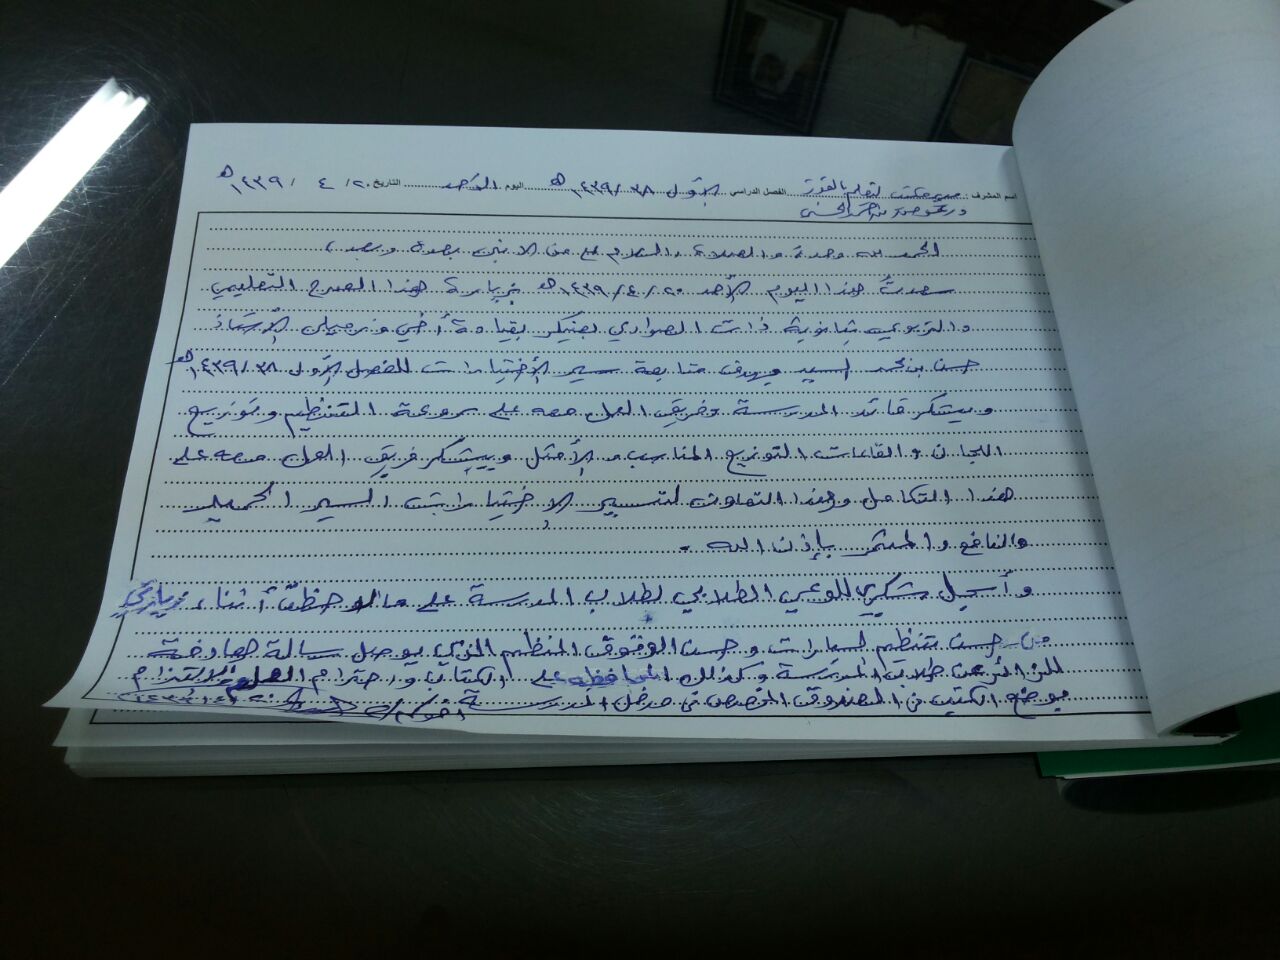 اسم المشرف : مدير مكتب تعليم بالقوز الفصل الدراسي الأول ١٤٣٩/٣٨هـ اليوم الأحد التاريخ ٢٠ / ٤ / ١٤٣٩هـ
الحمد لله وحده والصلاة والسلام على من لا نبي بعده وبعد ،
سعدتُ هذا اليوم الأحد ٢٠ / ٤ / ١٤٣٩هـ بزيارة هذا الصرح التعليمي
والتربوي ثانوية ذات الصواري بقيادة أخي وزميلي الأستاذ
حسن بن محمد السيد وبهدف متابعة سير الأختبارات للفصل الأول ١٤٣٩/٣٨هـ
ويشكر قائد المدرسة وفريق العمل معه على روعة التنظيم وتوزيع
اللجان والقاعات التوزيع المناسب والأمثل ويشكر فريق العمل معه على
هذا التكامل وهذا التعاون لتسيير الإختبارات السير الحميد
والنافع والمثمر بإذن الله .
وأسجل شكري للوعي الطلابي لطلاب المدرسة على ما لاحظتُ أثناء زيارتي
من حسن تنظيم السيارات وحسن الوقوف المنظم الذي يوصل رسالة صادقة
للزائر عن طلاب المدرسة وكذلك المحافظة على الكتاب واحترام العلم والإلتزام
بوضع الكتب في الصندوق المخصص في مدخل المدرسة